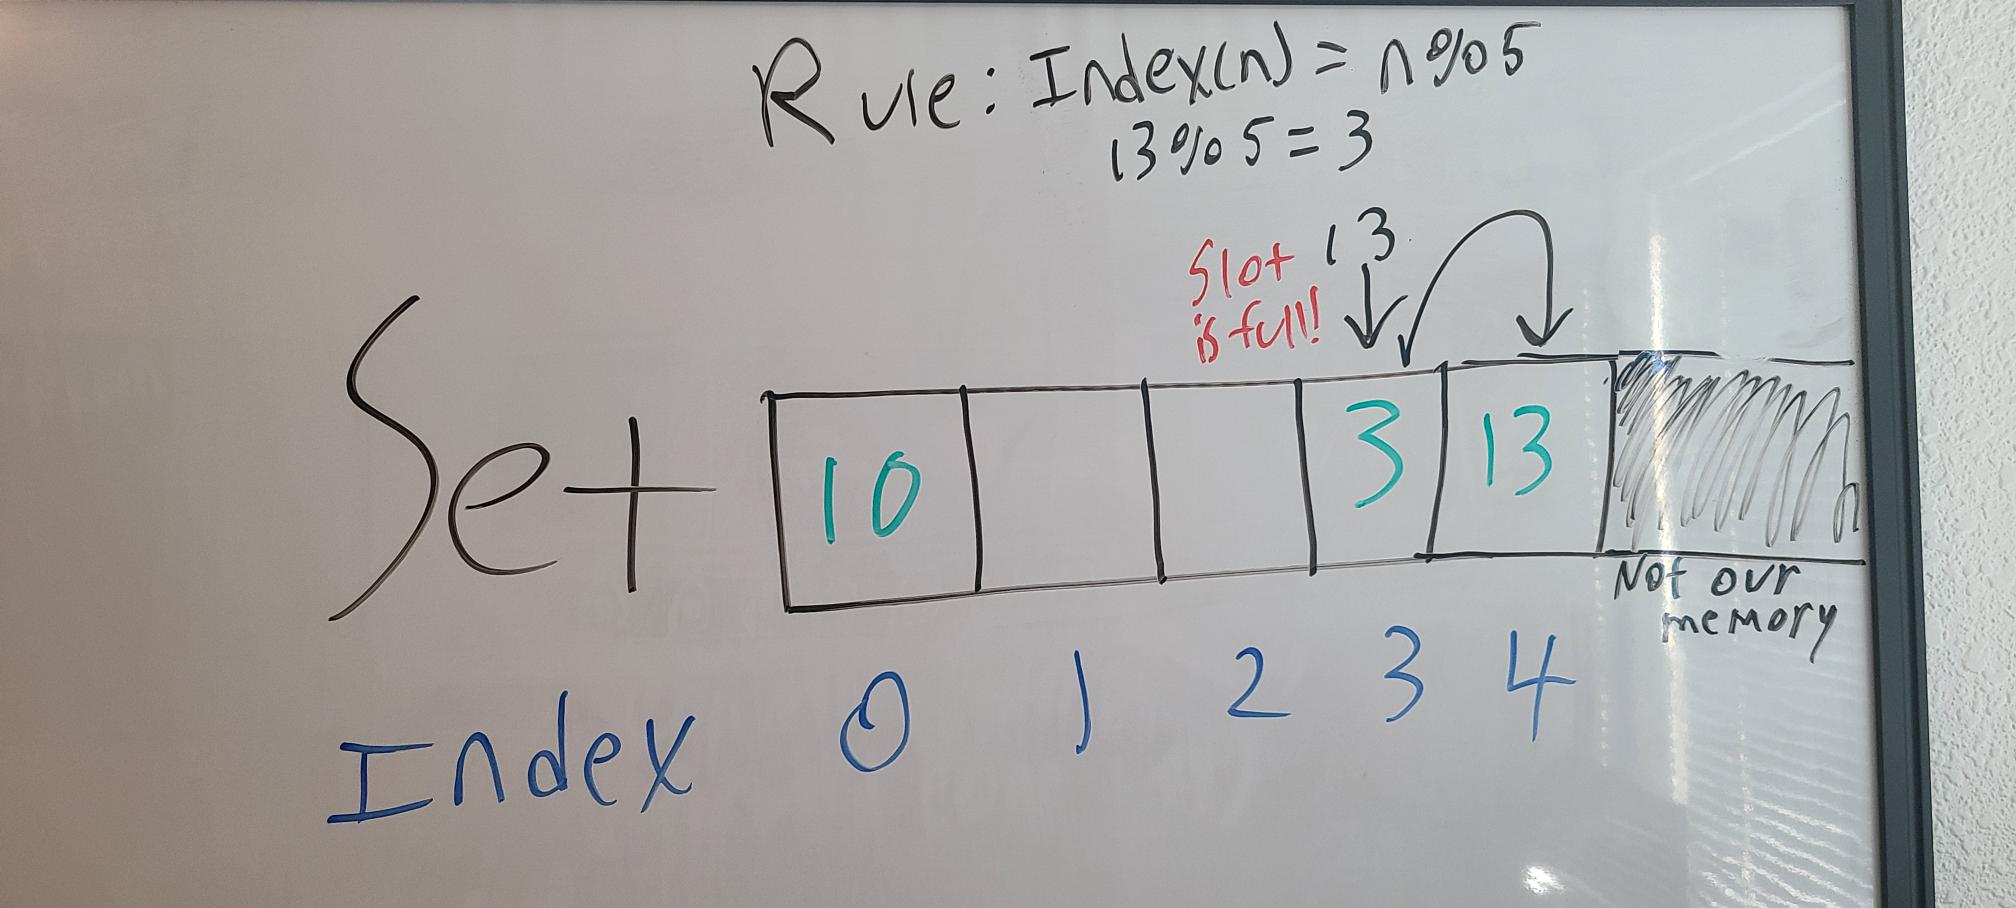 Rule: Index(n) = n%5
13%5=3
Slot 13
is full!
Set 10 3 13
Not our
memory
Index 0 1 2 3 4